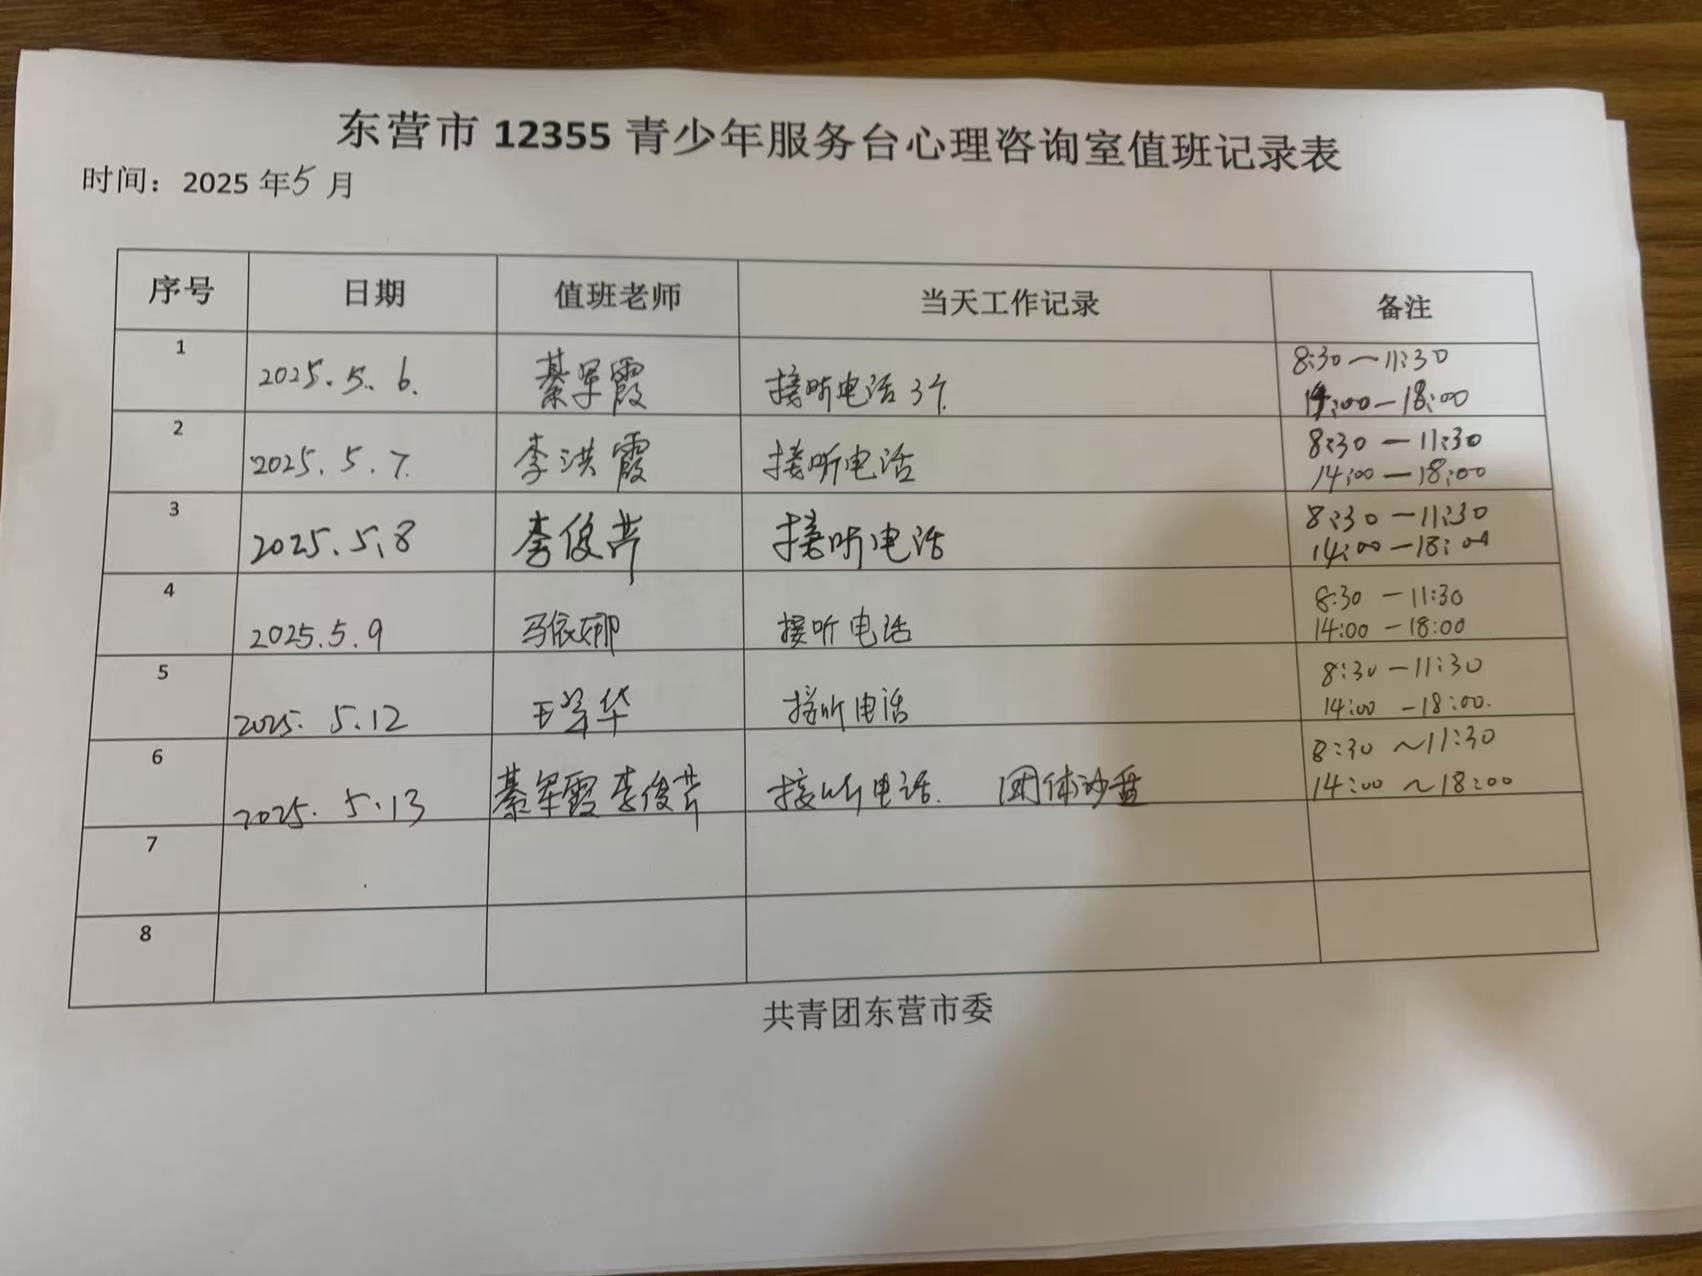 东营市 12355 青少年服务台心理咨询室值班记录表
时间：2025 年5 月
序号 日期 值班老师 当天工作记录 备注
1 2025.5.6. 綦军霞 接听电话3个. 8:30—11:30
14:00—18:00
2 2025.5.7. 李洪霞 接听电话 8:30—11:30
14:00—18:00
3 2025.5.8 李俊芹 接听电话 8:30—11:30
14:00—18:00
4 2025.5.9 马依娜 接听电话 8:30—11:30
14:00—18:00
5 2025.5.12 王军华 接听电话 8:30—11:30
14:00—18:00.
6 2025.5.13 綦军霞 李俊芹 接听电话. 团体沙盘 8:30～11:30
14:00～18:00
7
8
共青团东营市委